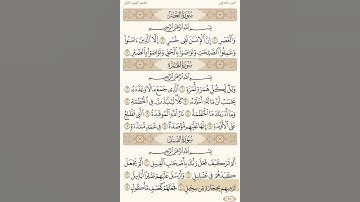 الجزء الثلاثون
العصر الهمزة الفيل
سُورَةُ العَصْرِ
بِسْمِ ٱللَّهِ ٱلرَّحْمَٰنِ ٱلرَّحِيمِ
وَٱلْعَصْرِ ١ إِنَّ ٱلْإِنسَٰنَ لَفِى خُسْرٍ ٢ إِلَّا ٱلَّذِينَ ءَامَنُوا۟
وَعَمِلُوا۟ ٱلصَّٰلِحَٰتِ وَتَوَاصَوْا۟ بِٱلْحَقِّ وَتَوَاصَوْا۟ بِٱلصَّبْرِ ٣
سُورَةُ الهُمَزَةِ
بِسْمِ ٱللَّهِ ٱلرَّحْمَٰنِ ٱلرَّحِيمِ
وَيْلٌ لِّكُلِّ هُمَزَةٍ لُّمَزَةٍ ١ ٱلَّذِى جَمَعَ مَالًا وَعَدَّدَهُۥ ٢
يَحْسَبُ أَنَّ مَالَهُۥٓ أَخْلَدَهُۥ ٣ كَلَّا لَيُنۢبَذَنَّ فِى ٱلْحُطَمَةِ ٤
وَمَآ أَدْرَىٰكَ مَا ٱلْحُطَمَةُ ٥ نَارُ ٱللَّهِ ٱلْمُوقَدَةُ ٦ ٱلَّتِى تَطَّلِعُ
عَلَى ٱلْأَفْـِٔدَةِ ٧ إِنَّهَا عَلَيْهِم مُّؤْصَدَةٌ ٨ فِى عَمَدٍ مُّمَدَّدَةٍۭ ٩
سُورَةُ الفِيلِ
بِسْمِ ٱللَّهِ ٱلرَّحْمَٰنِ ٱلرَّحِيمِ
أَلَمْ تَرَ كَيْفَ فَعَلَ رَبُّكَ بِأَصْحَٰبِ ٱلْفِيلِ ١ أَلَمْ يَجْعَلْ
كَيْدَهُمْ فِى تَضْلِيلٍ ٢ وَأَرْسَلَ عَلَيْهِمْ طَيْرًا أَبَابِيلَ ٣
تَرْمِيهِم بِحِجَارَةٍ مِّن سِجِّيلٍ ٤ فَجَعَلَهُمْ كَعَصْفٍ مَّأْكُولٍۭ ٥